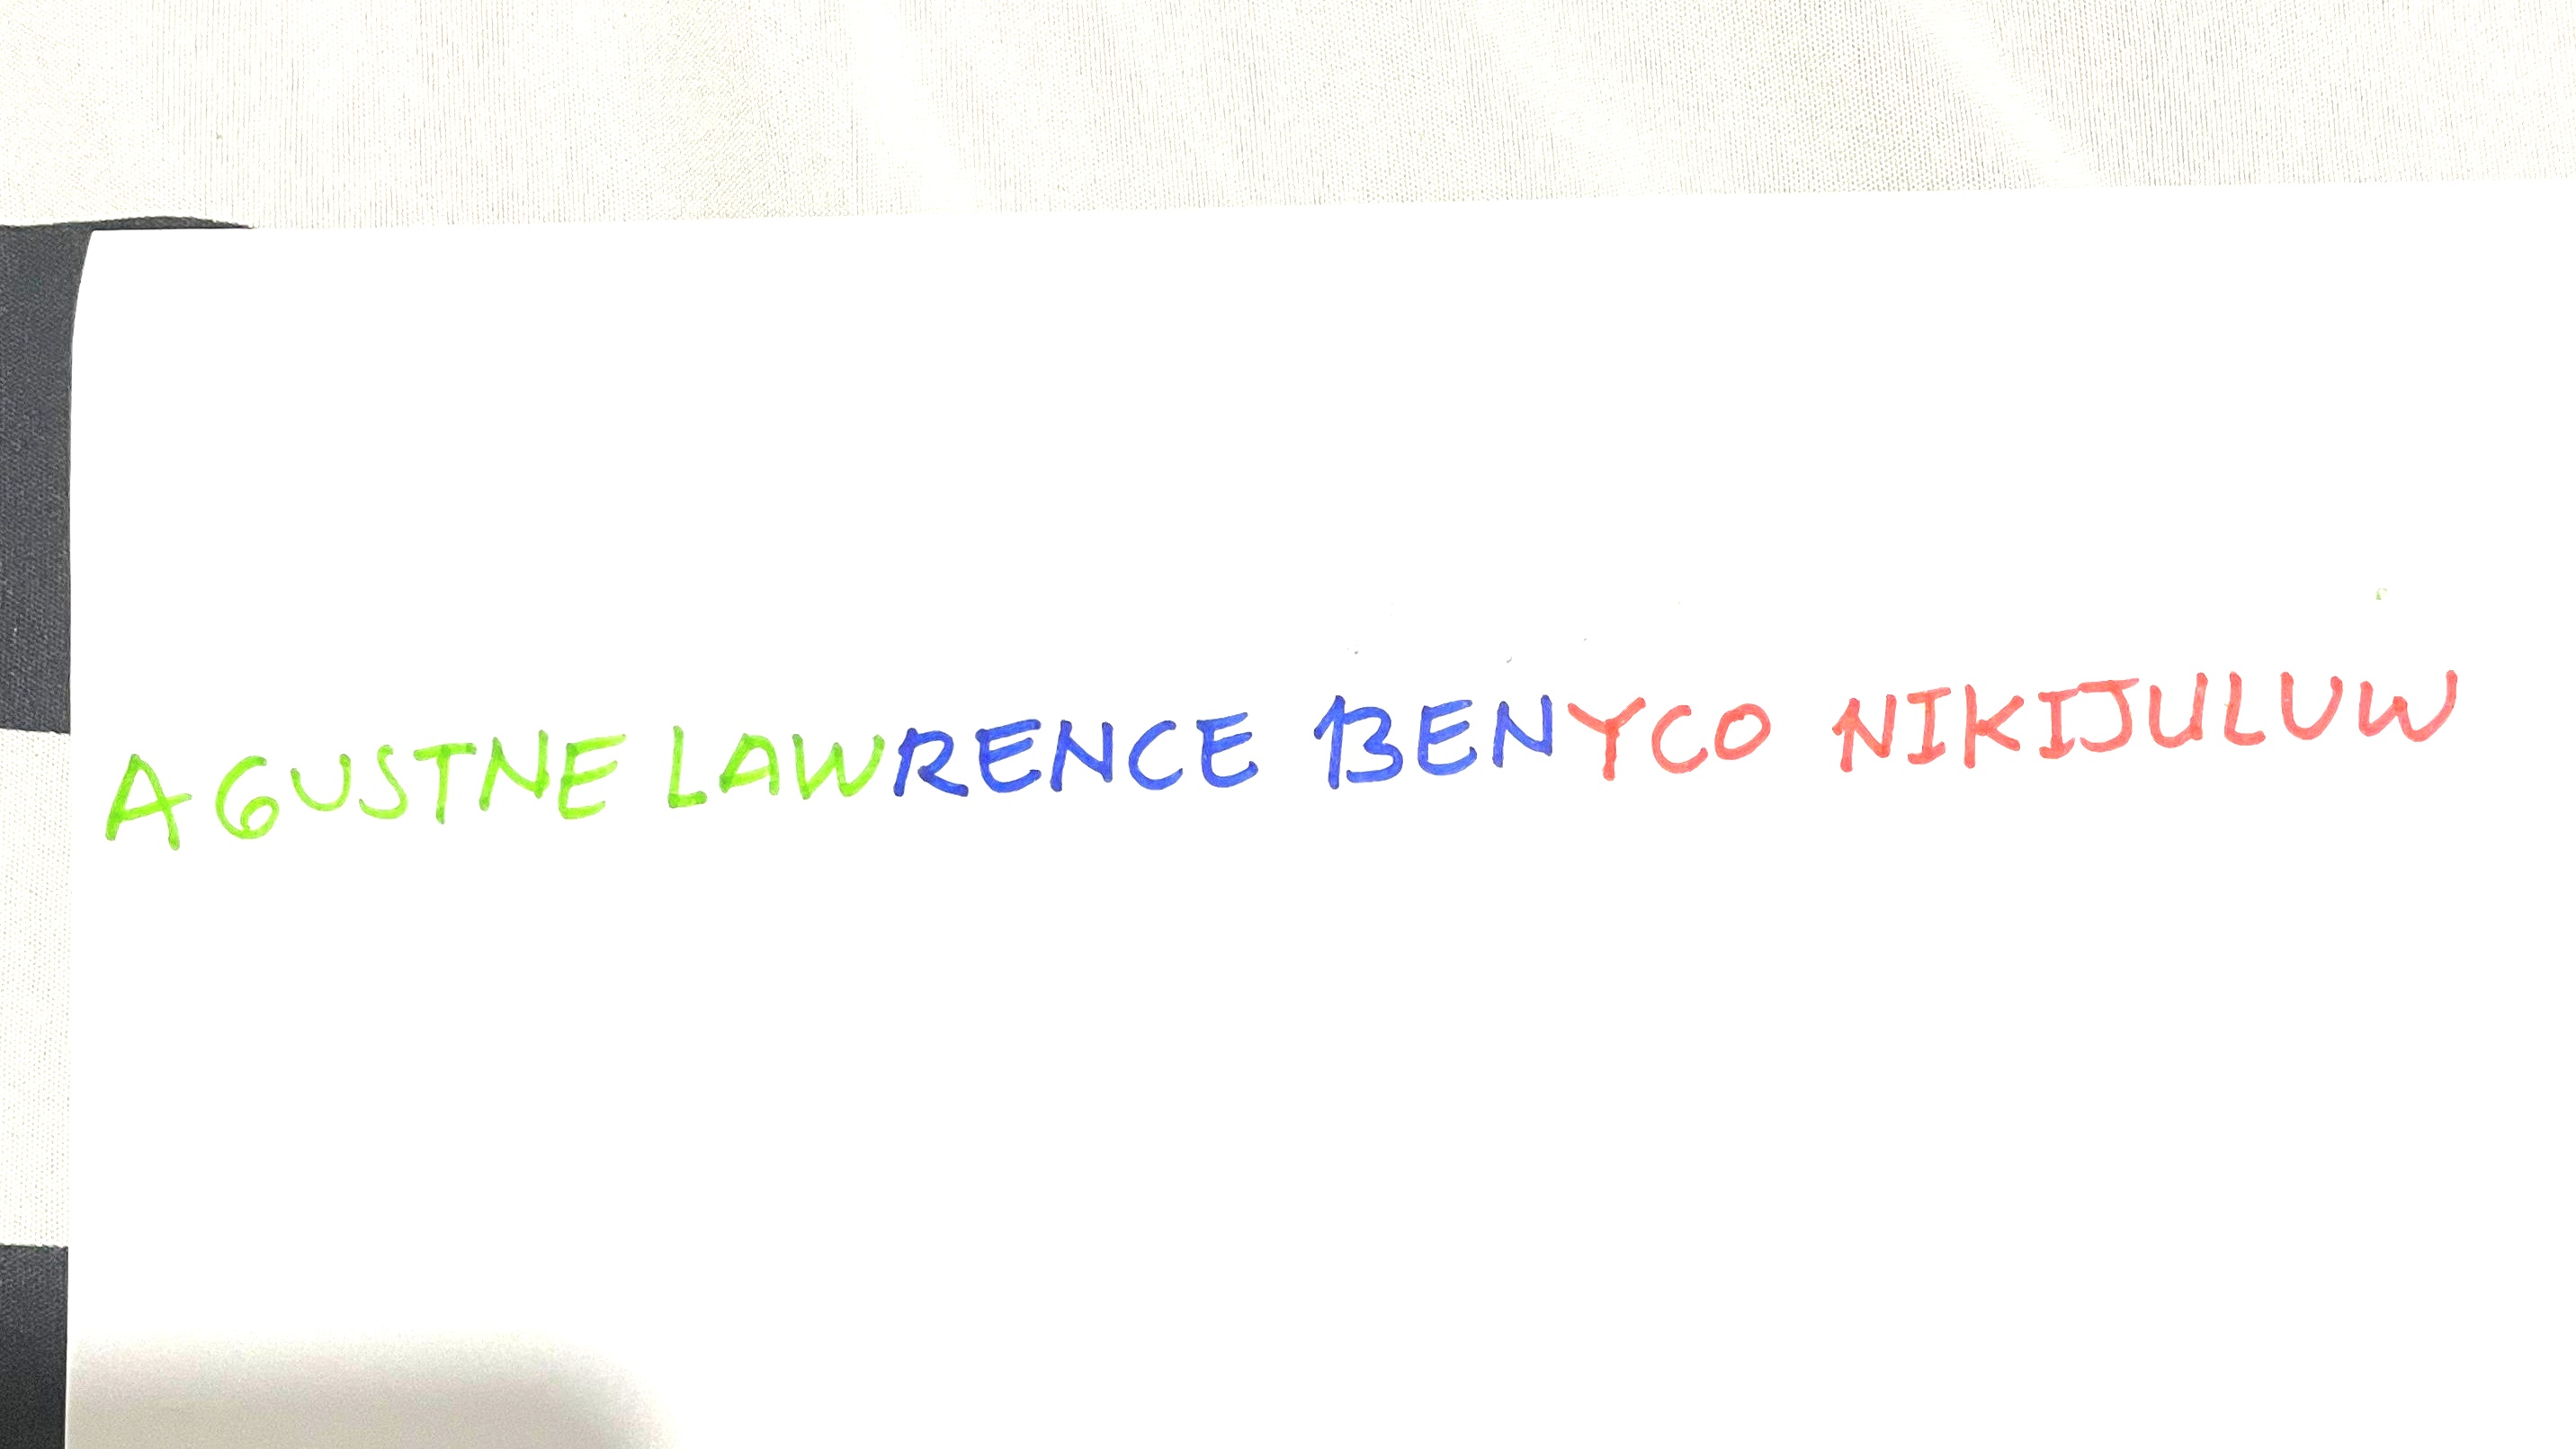 AGUSTNE LAWRENCE BENYCO NIKIJULUW